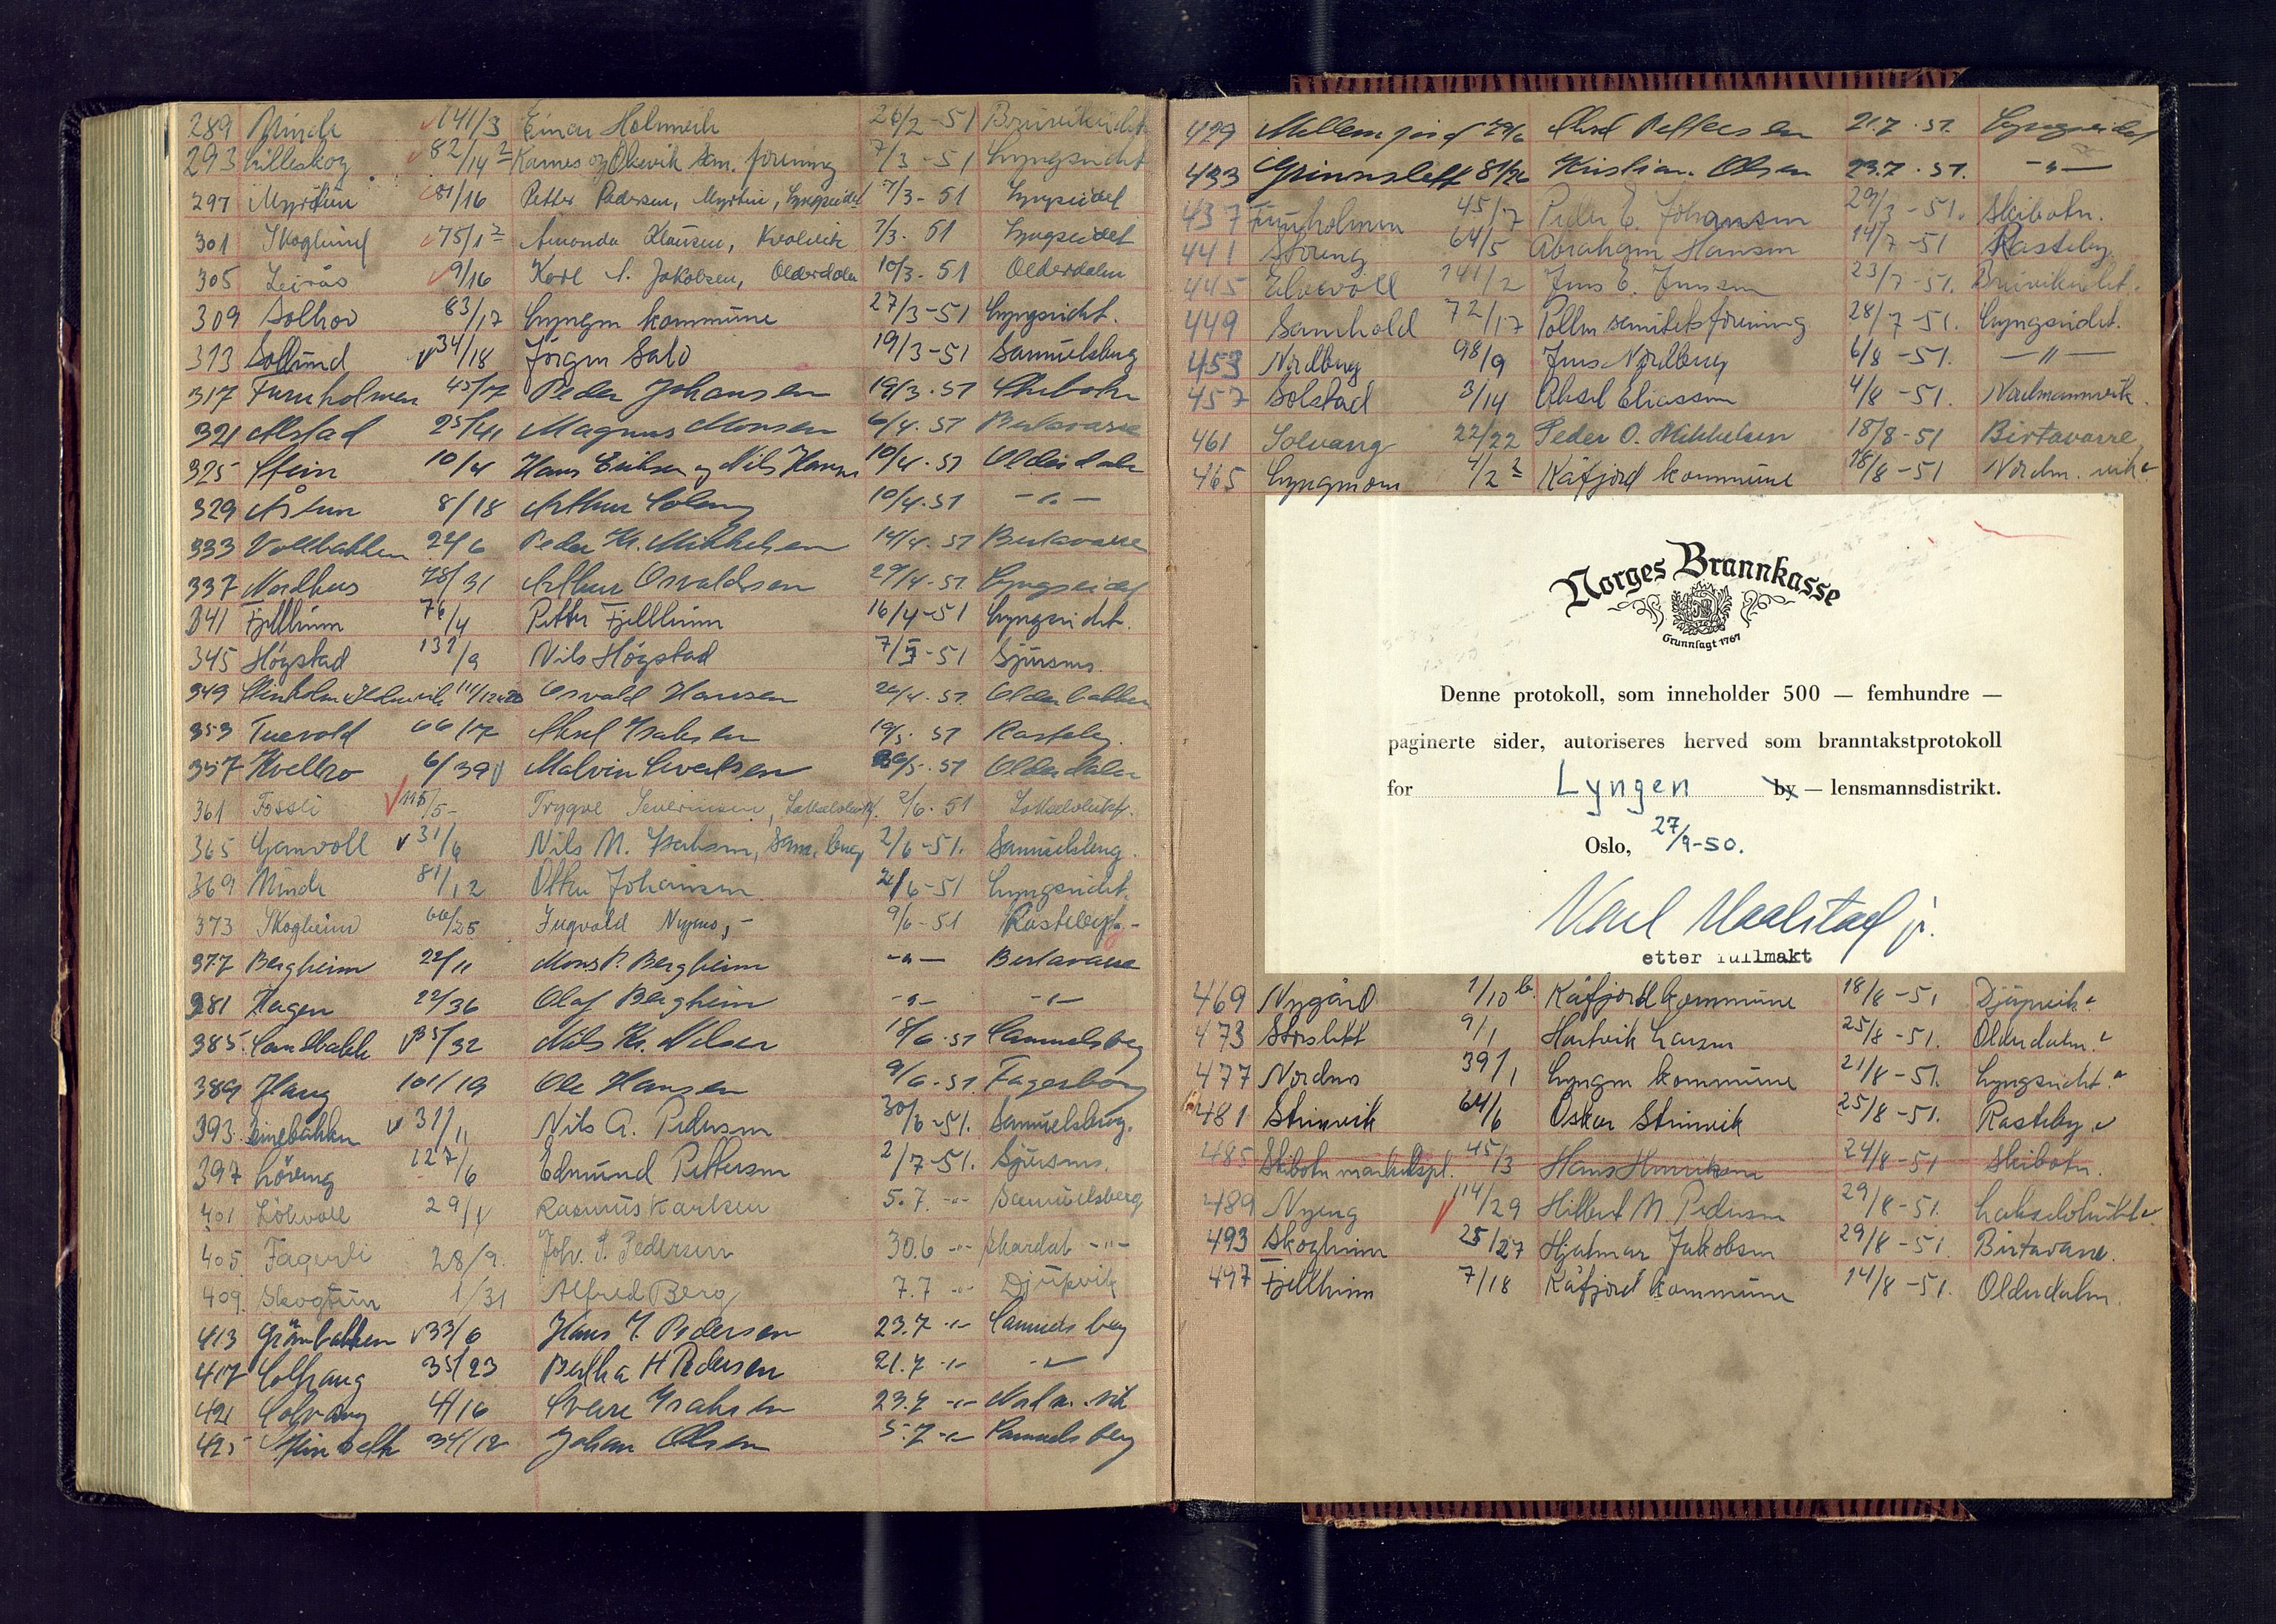 289 Minde 141/3 Einar Holmvik 26/2-51 Breivikeidet
293 Lilleskog 82/14² Karnes og Økevik sam. forening 7/3-51 Lyngseidet
297 Myrtun 81/16 Petter Pedersen, Myrtun, Lyngseidet 7/3-51 Lyngseidet
301 Skoglund 75/1² Amanda Hansen, Kvalvik 7/3-51 Lyngseidet
305 Leirås 9/16 Karl A. Jakobsen, Olderdalen 10/3-51 Olderdalen
309 Solhov 83/17 Lyngen kommune 27/3-51 Lyngseidet.
313 Sollund 34/18 Jörgen Salo 19/3-51 Samuelsberg
317 Furuholmen 45/17 Peder Johansen 19/3-51 Skibotn
321 Alstad 25/41 Magnus Monsen 6/4-51 Birtavarre
325 Stein 10/4 Hans Eriksen og Nils Hansen 10/4-51 Olderdalen
329 Åstun 8/18 Arthur Soleng 10/4-51 -"-
333 Vollbakken 22/6 Peder Kr. Mikkelsen 14/4-51 Birtavarre
337 Nordhus 78/31 Arthur Osvaldsen 29/4-51 Lyngseidet
341 Fjellheim 76/4 Petter Fjellheim 16/4-51 Lyngseidet.
345 Högstad 137/9 Nils Högstad 7/5-51 Sjursnes.
349 Osvald Hansen 26/4-51 Olderbakken
353 Tuevold 66/17 Aksel Isaksen 19/5-51 Rasteby.
357 Kvellro 6/39 Malvin Sivertsen 29/5-51 Olderdalen
361 Fossli 115/5 Trygve Severinsen, Lakselvbukt. 2/6-51 Lakselvbukt.
365 Granvoll 31/6 Nils N. Isaksen, Sam.berg 2/6-51. Samuelsberg.
369 Minde 81/12 Otto Johansen 2/6-51 Lyngseidet.
373 Skogheim 66/25 Ingvald Nymo, - 9/6-51 Rasteby.-
377 Bergheim 22/11 Mons P. Bergheim -"- Birtavarre
381 Hagen 22/36 Olaf Bergheim -"- -"-
385 Sandbakk 35/32 Nils Kr. Nilsen 18/6-51 Samuelsberg
389 Haug 101/19 Ole Hansen 9/6-51 Fagerborg
393 Einebakken 31/11 Nils A. Pedersen 30/6-51. Samuelsberg.
397 Löveng 127/6 Edmund Pettersen 2/7-51. Sjursnes.
401 Lökvoll 29/1 Rasmus Karlsen 5.7.-"- Samuelsberg
405 Fagerli 28/9. Joh. P. Pedersen 30.6 -"- Skardal -"-
409. Skogtun 1/31 Alfred Berg 7.7 -"- Djupvik
413 Grönbakken 33/6 Hans I. Pedersen 23.7 -"- Samuelsberg
417 Solhaug 35/23 Bertha H Pedersen 21.7 -"- -"-
421 Solvang 4/16 Sverre Isaksen 23.7 -"- Nordm.vik
425 34/12 Johan Olsen 5.7 -"- Samuelsberg
429 Mellemjord 79/6 Aksel Pettersen 21.7.51. Lyngseidet
433 Grinnslett 81/26 Kristian Olsen 23.7.51. -"-
437 Furuholmen 45/17 Peder E. Johansen 29/3-51. Skibotn.
441 Storeng 64/5 Abraham Hansen 14/7-51 Rasteby.
445 Elvevoll 141/2 Jens E. Jensen 23/7-51. Breivikeidet.
449 Samhold 72/17 Pollen sanitetsforening 28/7-51. Lyngseidet.
453 Nordberg 98/9 Jens Nordberg 6/8-51. -"-
457 Solstad 3/14 Aksel Eliassen 4/8-51. Nordmannvik.
461 Solvang 22/22 Peder O. Mikkelsen 18/8-51 Birtavarre
465 Lyngmoen 4/2² Kåfjord kommune 18/8-51 Nordm. vik
Norges Brannkasse
Grunnlagt 1767
Denne protokoll, som inneholder 500 — femhundre —
paginerte sider, autoriseres herved som branntakstprotokoll
for Lyngen by — lensmannsdistrikt.
Oslo, 27/9-50.
etter fullmakt
469 Nygård 1/10 b. Kåfjord kommune 18/8-51 Djupvik
473 Storslett 9/1 Hartvik Larsen 25/8-51. Olderdalen.
477 Nordnes 39/1 Lyngen kommune 21/8-51. Lyngseidet.
481 Steinvik 64/6 Oskar Steinvik 25/8-51. Rasteby.
485 Skibotn markedspl. 45/3 Hans Henriksen 24/8-51 Skibotn.
489 Nyeng 114/29 Hilbert N. Pedersen 29/8-51. Lakselvbukt
493 Skogheim 25/27 Hjalmar Jakobsen 29/8-51. Birtavarre.
497 Fjellheim 7/18 Kåfjord kommune 14/8-51. Olderdalen.